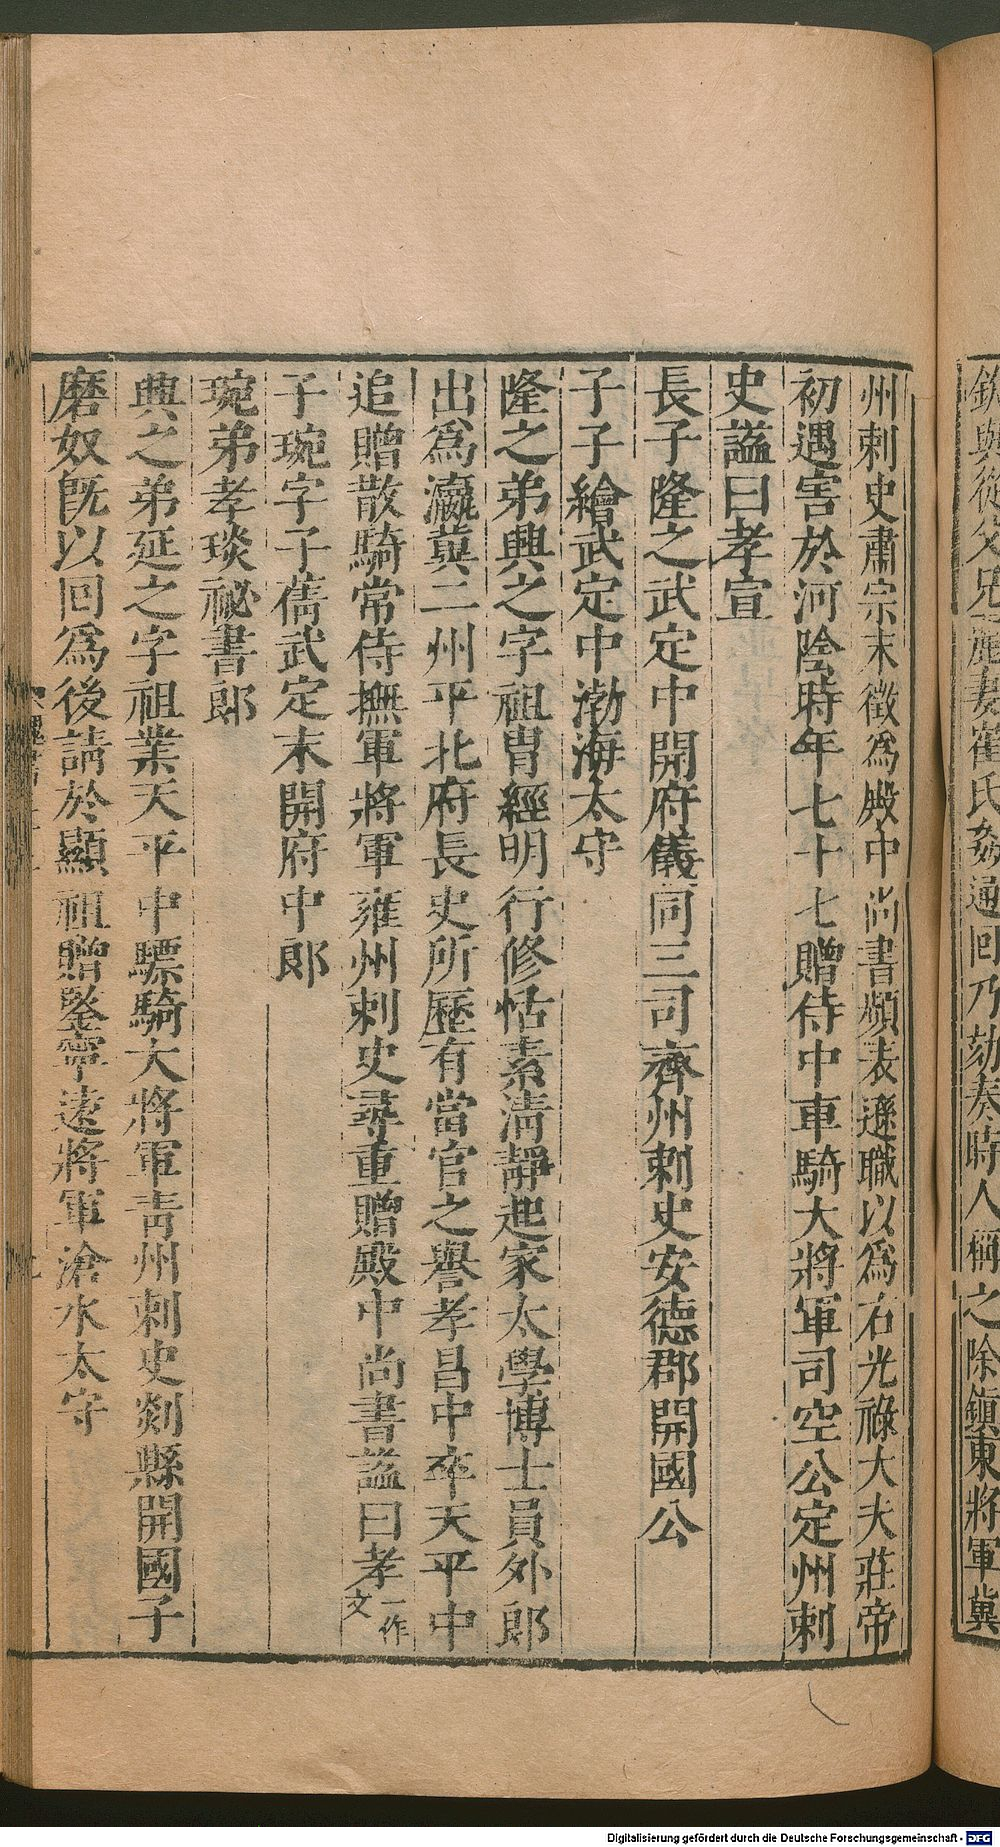 欽與從父兄麗妻崔氏姦通回乃劾奏時人稱之除鎮東將軍冀
州刺史肅宗末徵為殿中尚書頻表遜職以為右光祿大夫莊帝
初遇害於河陰時年七十七贈侍中車騎大將軍司空公定州刺
史諡曰孝宣
長子隆之武定中開府儀同三司齊州刺史安德郡開國公
子子繪武定中渤海太守
隆之弟興之字祖胄經明行修恬素清靜起家太學博士員外郎
出為瀛冀二州平北府長史所歷有當官之譽孝昌中卒天平中
追贈散騎常侍撫軍將軍雍州刺史尋重贈殿中尚書諡曰孝一作文
子琬字子儁武定末開府中郎
琬弟孝琰祕書郎
興之弟延之字祖業天平中驃騎大將軍青州刺史剡縣開國子
磨奴旣以回為後請於顯祖贈鑒寧遠將軍滄水太守
Digitalisierung gefördert durch die Deutsche Forschungsgemeinschaft - DFG